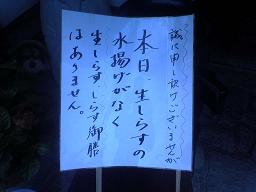 誠に申し訳けございませんが
本日、生しらすの
水揚げがなく
生しらす、しらす御膳
はありません。